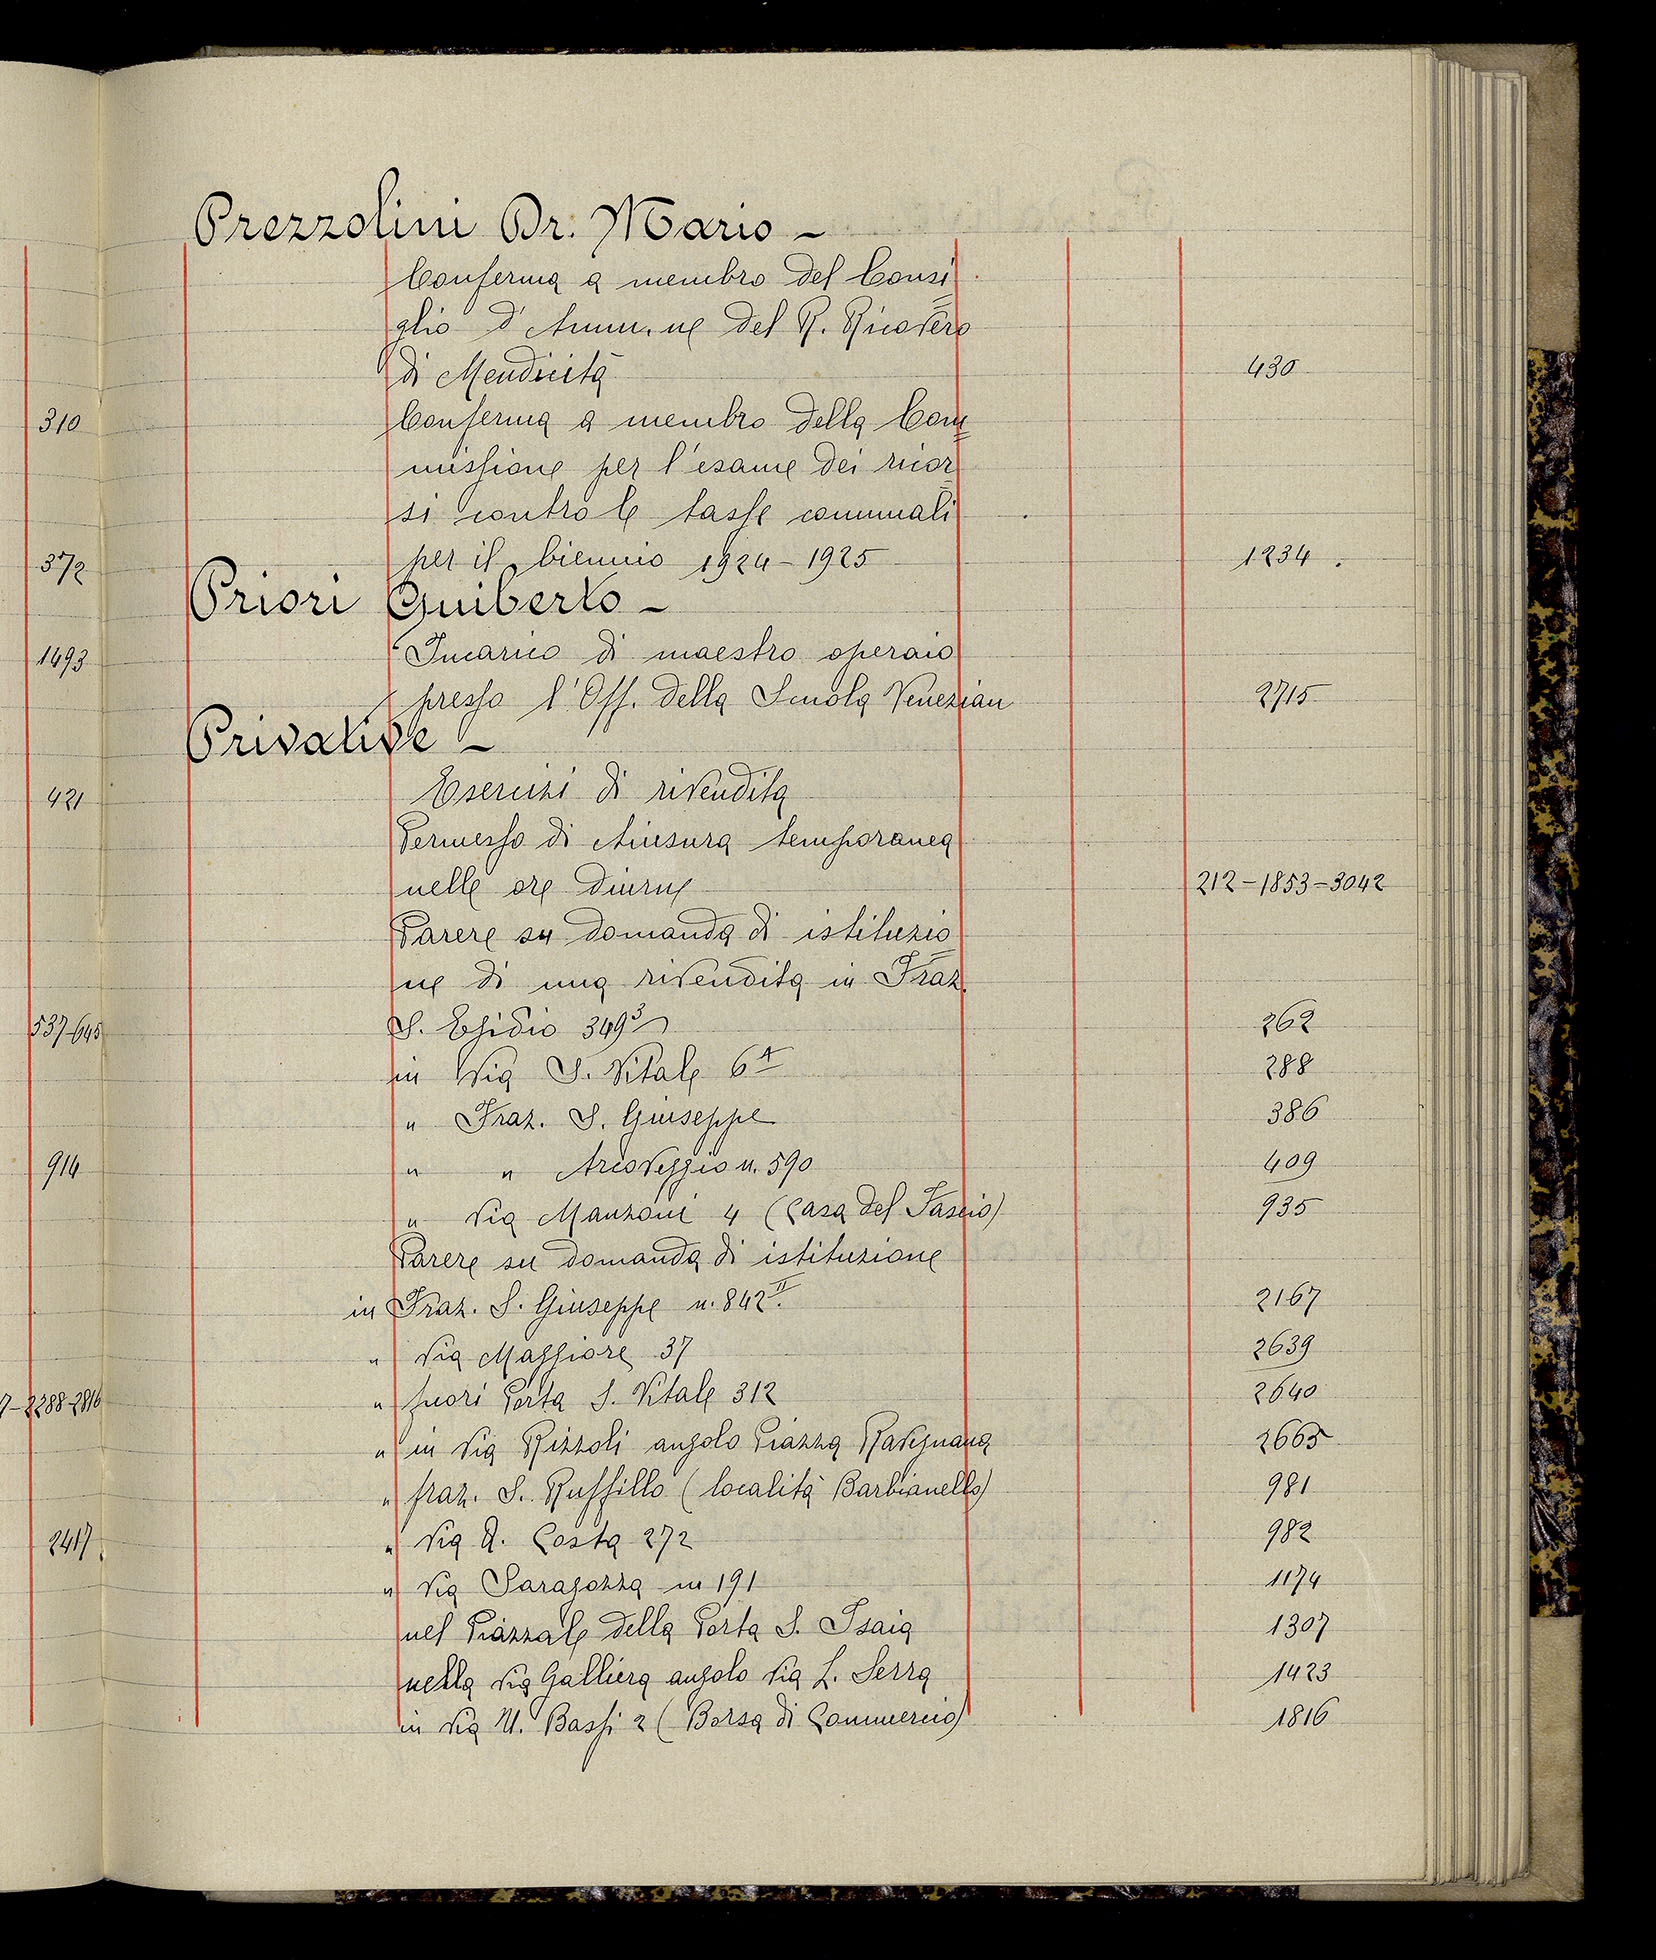 310
372
1493
421
537-645
914
7-2288-2816
2417.
Prezzolini Dr. Mario -
Conferma a membro del Consi=
glio d'Amm.ne del R. Ricovero
di Mendicità 430
Conferma a membro della Com=
missione per l'esame dei ricor=
si contro le tasse comunali
per il biennio 1924-1925 1234.
Priori Guiberto -
Incarico di maestro operaio
presso l'Off. della Scuola Venezian 2715
Privative -
Esercizi di rivendita
Permesso di chiusura temporanea
nelle ore diurne 212-1853-3042
Parere su domanda di istituzio=
ne di una rivendita in Fraz.
S. Egidio 349³ 262
in Via S. Vitale 6A 288
" Fraz. S. Giuseppe 386
" " Arcoveggio n. 590 409
" Via Manzoni 4 (Casa del Fascio) 935
Parere su domanda di istituzione
in Fraz. S. Giuseppe n. 842II. 2167
" Via Maggiore 37 2639
" fuori Porta S. Vitale 312 2640
" in Via Rizzoli angolo Piazza Ravegnana 2665
" fraz. S. Ruffillo (località Barbianello) 981
" Via A. Costa 272 982
" Via Saragozza n 191 1174
nel Piazzale della Porta S. Isaia 1307
nella Via Galliera angolo Via L. Serra 1423
in Via U. Bassi 2 (Borsa di Commercio) 1816